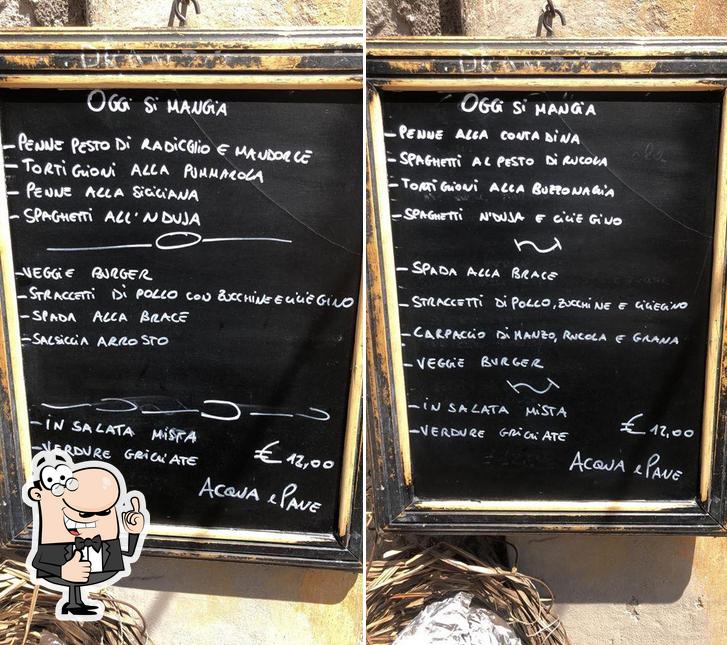 OGGI SI MANGIA
- PENNE PESTO DI RADICCHIO E MANDORLE
- TORTIGLIONI ALLA PUMMAROLA
- PENNE ALLA SICILIANA
- SPAGHETTI ALL'NDUJA
- VEGGIE BURGER
- STRACCETTI DI POLLO CON ZUCCHINE E CILIEGINO
- SPADA ALLA BRACE
- SALSICCIA ARROSTO
- INSALATA MISTA
- VERDURE GRIGLIATE
€ 12,00
ACQUA e PANE
OGGI SI MANGIA
- PENNE ALLA CONTADINA
- SPAGHETTI AL PESTO DI RUCOLA
- TORTIGLIONI ALLA BUZZONAGLIA
- SPAGHETTI N'DUJA E CILIEGINO
- SPADA ALLA BRACE
- STRACCETTI DI POLLO, ZUCCHINE E CILIEGINO
- CARPACCIO DI MANZO, RUCOLA E GRANA
- VEGGIE BURGER
- INSALATA MISTA
- VERDURE GRIGLIATE
€ 12,00
ACQUA e PANE